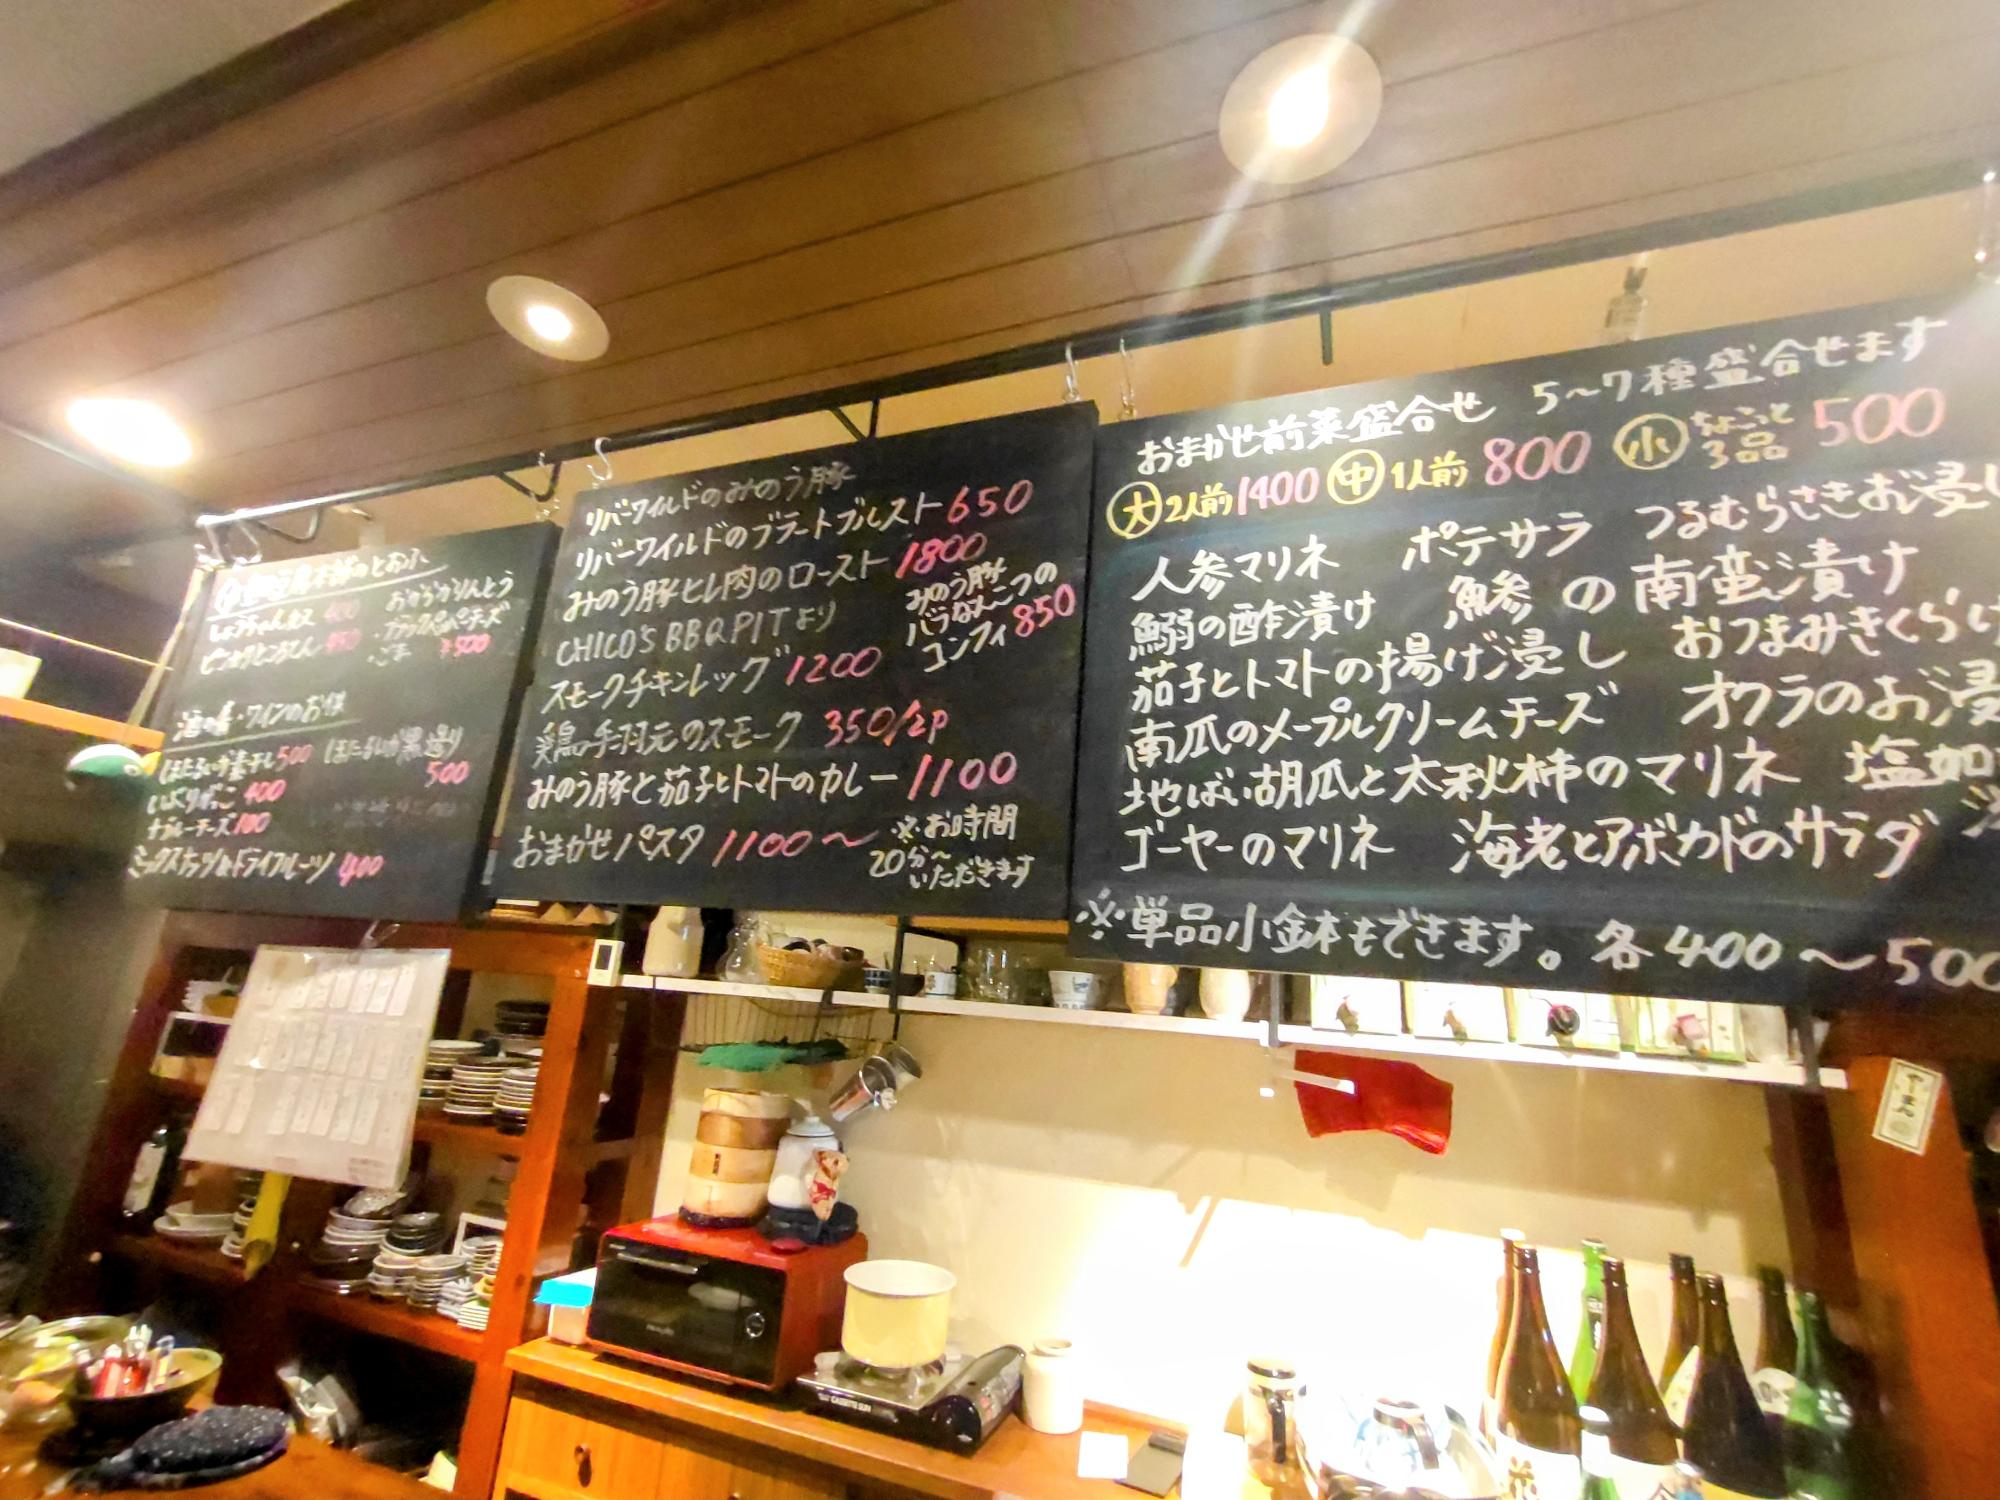 豆腐本部のとおふ
しょうちゃん 400
ピンカラところてん 450
おからかりんとう
・ブラックペッパーチーズ
・ごま ¥500
酒の肴・ワインのお供
ほたるいか素干し 500 ほたるいか黒造り 500
いぶりがっこ 400
ブルーチーズ 100
ミックスナッツ&ドライフルーツ 400
リバーワイルドのみのう豚
リバーワイルドのブラートブルスト 650
みのう豚ヒレ肉のロースト 1800
CHICO'S BBQ PITより
みのう豚
バラなんこつの
コンフィ 850
スモークチキンレッグ 1200
鶏手羽元のスモーク 350/2P
みのう豚と茄子とトマトのカレー 1100
おまかせパスタ 1100〜
※お時間
20分〜
いただきます
おまかせ前菜盛合せ 5〜7種盛合せます
大 2人前 1400 中 1人前 800 小 ちょこっと3品 500
人参マリネ ポテサラ つるむらさきお浸し
鰯の酢漬け 鯵の南蛮漬け
茄子とトマトの揚げ浸し おつまみきくらげ
南瓜のメープルクリームチーズ オクラのお浸
地ばい胡瓜と太秋柿のマリネ 塩如
ゴーヤーのマリネ 海老とアボカドのサラダ
※単品小鉢もできます。各400〜500